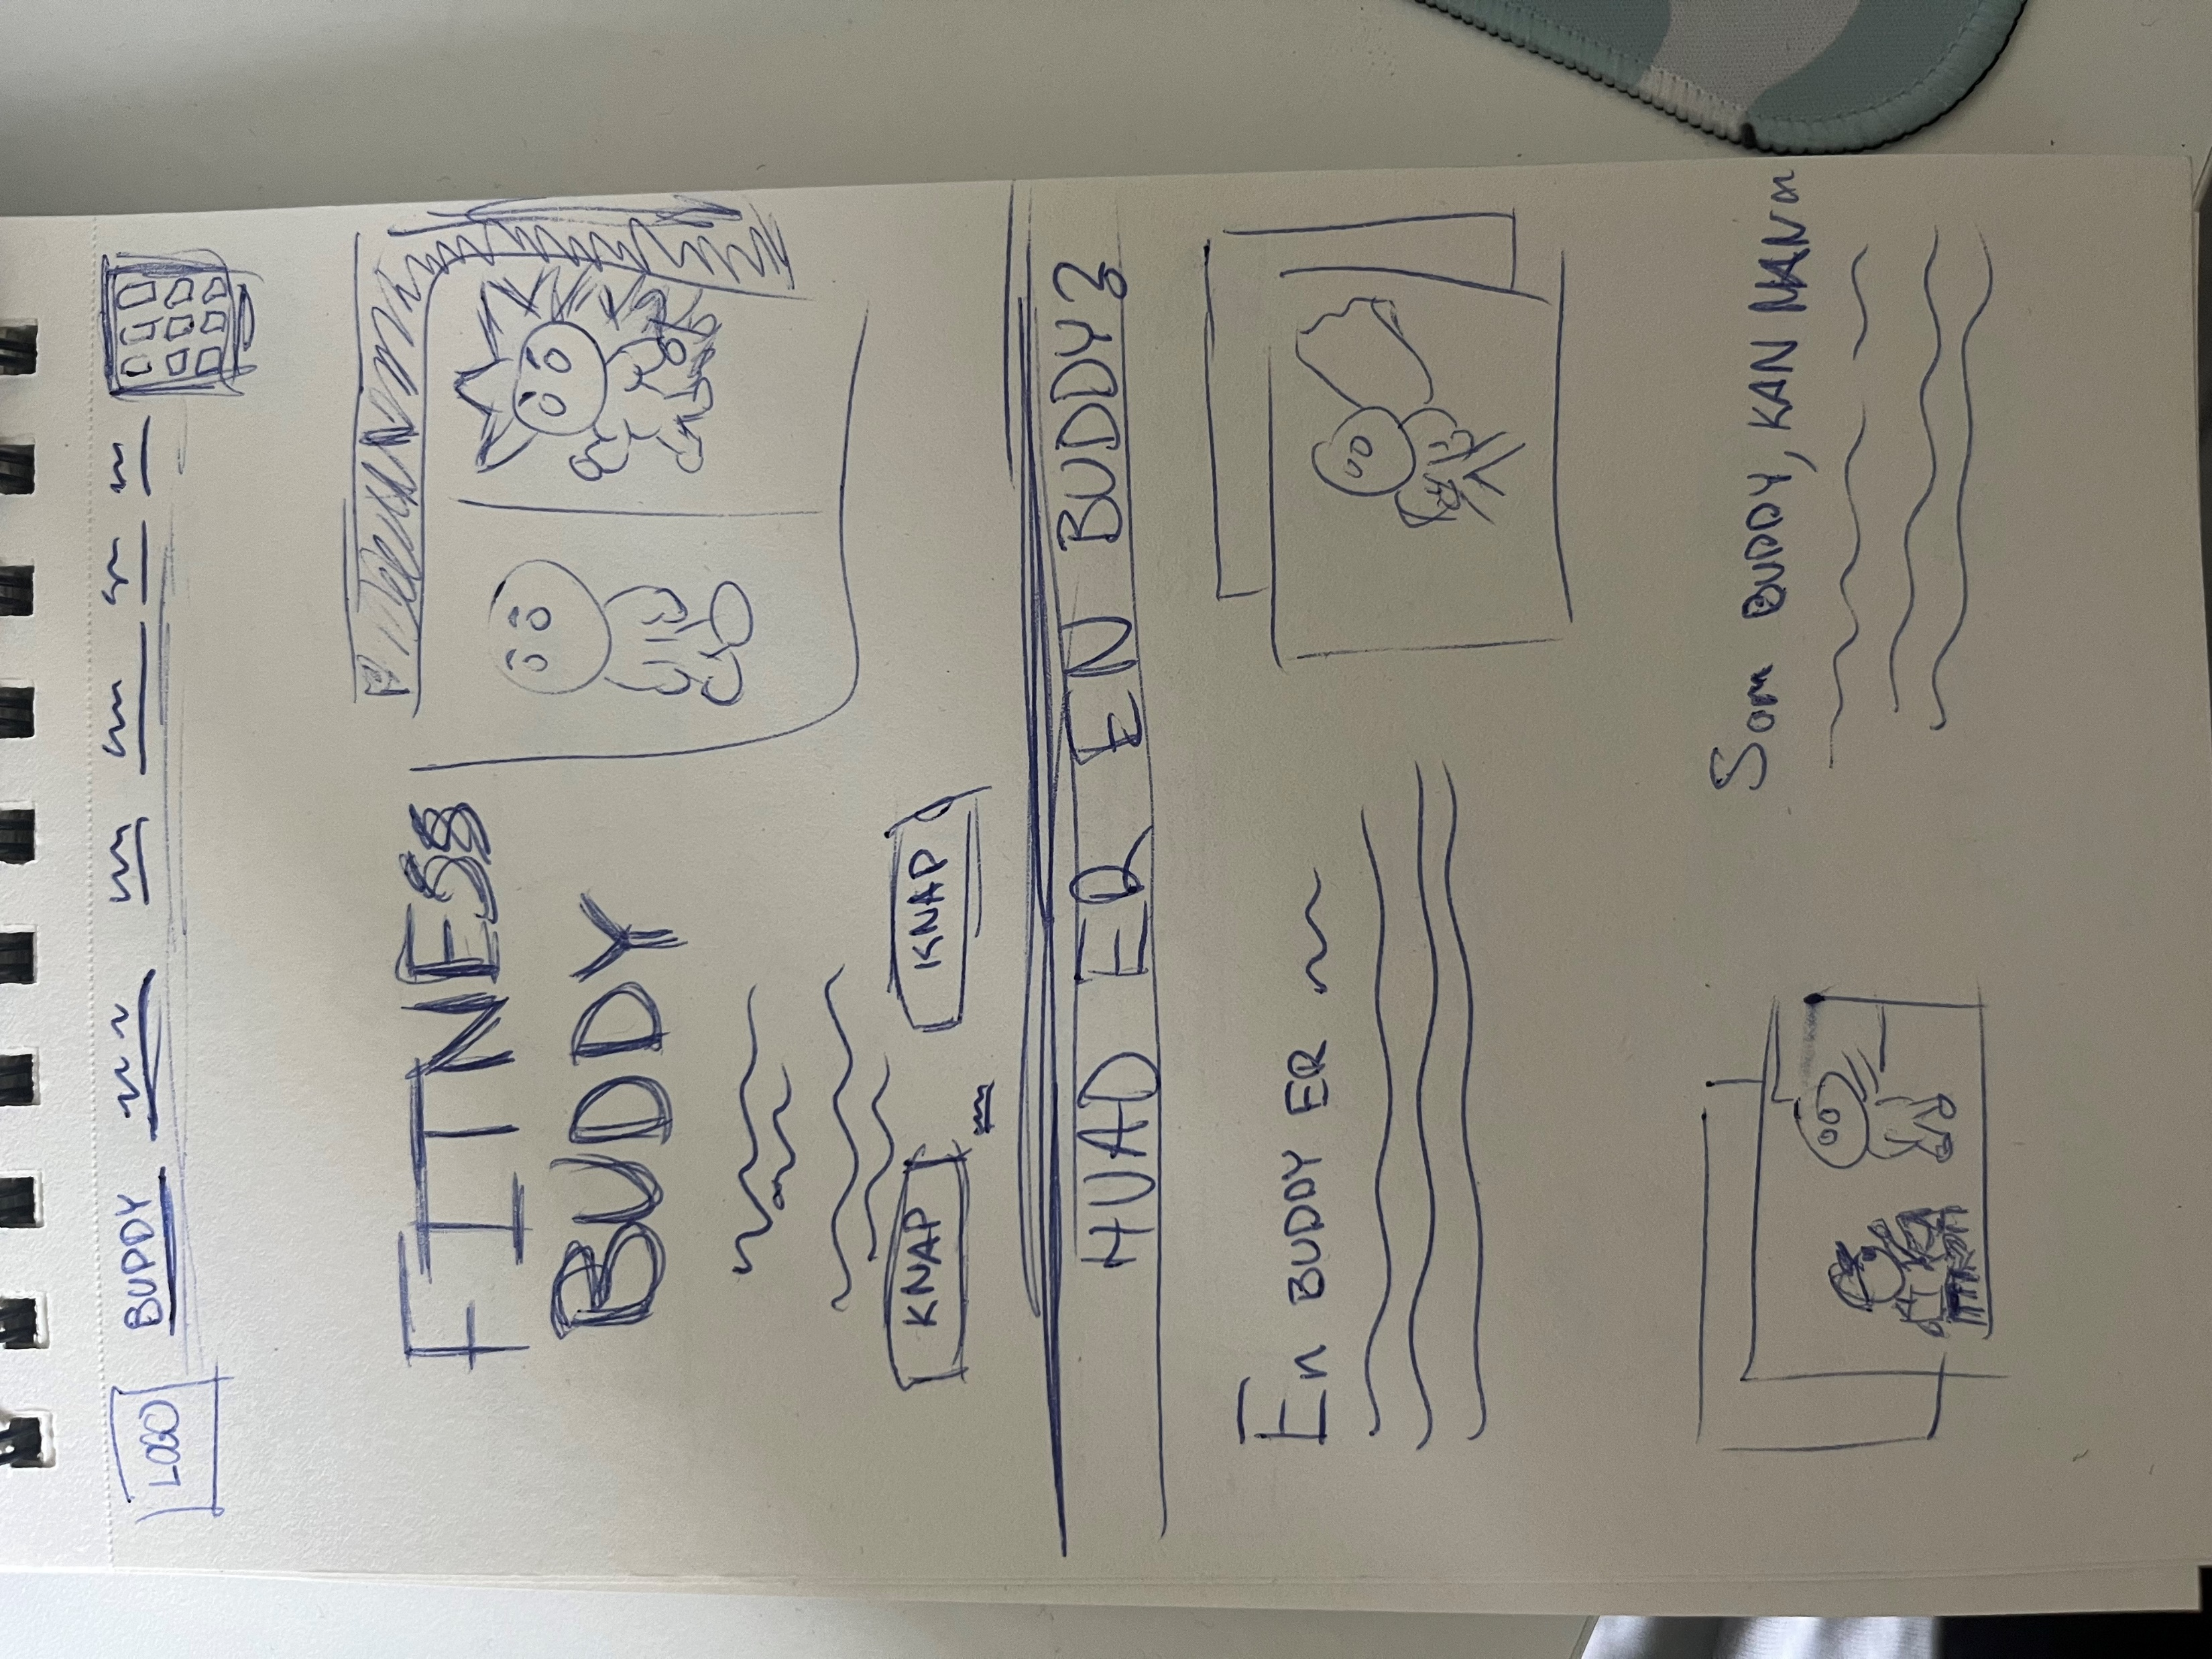 LOGO BUDDY
FITNESS
BUDDY
KNAP KNAP
HVAD ER EN BUDDY?
En BUDDY ER
Som BUDDY, KAN MAN